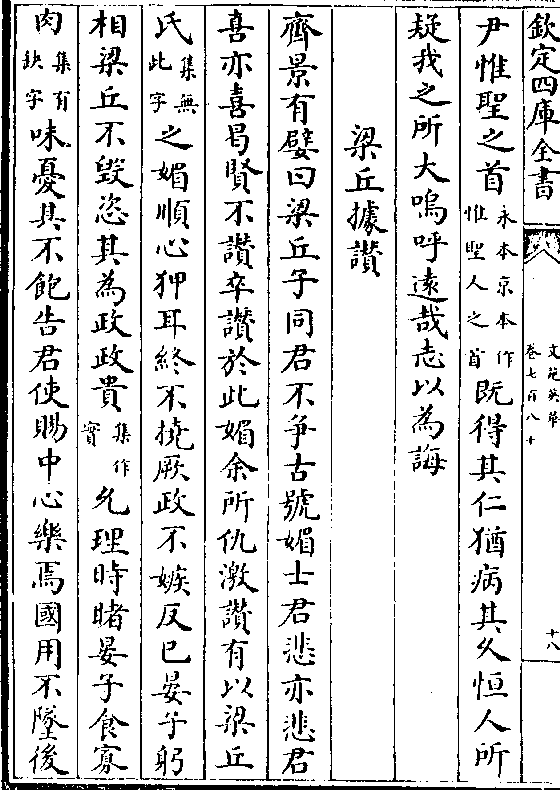 欽定四庫全書
文苑英華
卷七百八十
十八
尹惟聖之首永本京本作惟聖人之首既得其仁猶病其久恒人所
疑我之所大嗚呼遠哉志以為誨
梁丘據讃
齊景有嬖曰梁丘子同君不争古號媚士君悲亦悲君
喜亦喜曷賢不讃卒讃於此媚余所仇激讃有以梁丘
氏集無此字之媚順心狎耳終不撓厥政不嫉反已晏子躬
相梁丘不毀恣其為政政貴集作實允理時睹晏子食寡
肉集有缺字味憂其不飽告君使賜中心樂焉國用不墜後